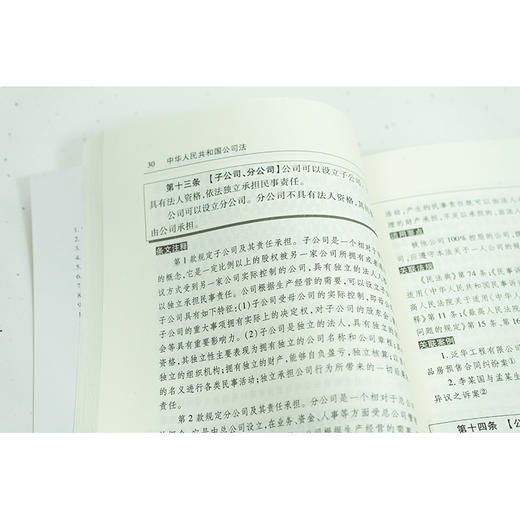 30 中华人民共和国公司法
第十三条 【子公司、分公司】公司可以设立子公司
具有法人资格,依法独立承担民事责任。
公司可以设立分公司。分公司不具有法人资格,其
由公司承担。
条文注释
第1款规定子公司及其责任承担。子公司是一个相对于
的概念,它是一定比例以上的股权被另一家公司所拥有或者
议方式受到另一家公司实际控制的公司,具有独立的法人人
以独立承担民事责任。公司根据生产经营的需要,可以设立
子公司具有如下特征:(1)子公司受母公司的实际控制,即母公
子公司的重大事项拥有实际上的决定权,对子公司的股东会
会等具有重要影响力。(2)子公司是独立的法人,具有独立的
资格,其独立性主要表现为拥有独立的公司名称和公司章程
独立的组织机构;拥有独立的财产,能够自负盈亏,独立核算;以
的名义进行各类民事活动;独立承担公司行为所带来的一切
责任。
第2款规定分公司及其责任承担。分公司是一个相对于总公
它是由总公司设立,在业务、资金、人事等方面受总公司管
公司根据生产经营的需要
适用要点
被他公司100%控股的公司,
应遵守本法关于一人公司的规
关联法规
《民法典》第74条,《民事诉
适用〈中华人民共和国民事诉讼
高人民法院关于适用〈中华人
释》第11条,《最高人民法院
问题的规定》第15条、第16
关联案例
1. 泛华工程有限公司
品房预售合同纠纷案①
2. 李某国与孟某生
异议之诉案②
第十四条 【公